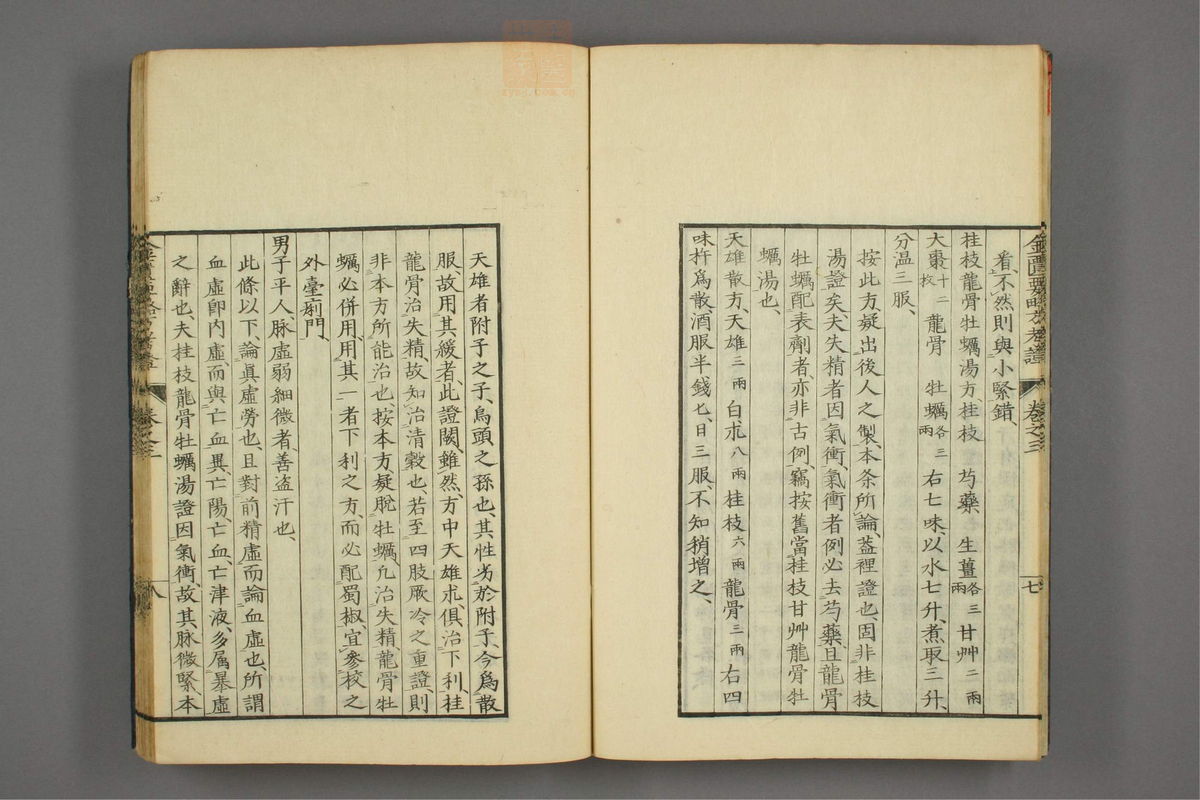 金匱要略方考證 卷之三 七
看、不然則與小緊錯、
桂枝龍骨牡蠣湯方、桂枝 芍藥 生薑各三兩 甘艸二兩
大棗十二枚 龍骨 牡蠣各三兩 右七味、以水七升、煮取三升、
分溫三服、
按此方疑出後人之製、本条所論、蓋裡證也、固非桂枝
湯證矣、夫失精者因氣衝、氣衝者例必去芍藥、且龍骨
牡蠣配表劑者、亦非古例、竊按舊當桂枝甘艸龍骨牡
蠣湯也、
天雄散方、天雄三兩 白朮八兩 桂枝六兩 龍骨三兩 右四
味杵爲散、酒服半錢匕、日三服、不知稍增之、
天雄者附子之子、烏頭之孫也、其性劣於附子、今爲散
服、故用其緩者、此證闕、雖然、方中天雄朮、俱治下利、桂
龍骨治失精、故知治清穀也、若至四肢厥冷之重證、則
非本方所能治也、按本方疑脫牡蠣、凡治失精龍骨牡
蠣必併用、用其一者下利之方、而必配蜀椒、宜參校之
外臺痢門、
男子平人脉虛弱細微者、善盗汗也、
此條以下、論眞虛勞也、且對前精虛而論血虛也、所謂
血虛卽内虛、而與亡血異、亡陽、亡血、亡津液、多属暴虛
之辭也、夫桂枝龍骨牡蠣湯證因氣衝、故其脉微緊、本
卷之三 八